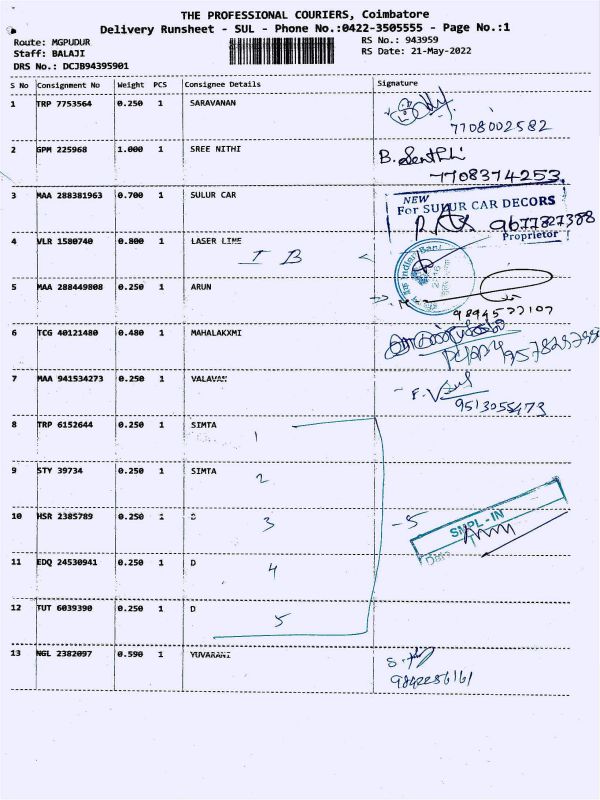 THE PROFESSIONAL COURIERS, Coimbatore
Delivery Runsheet - SUL - Phone No.:0422-3505555 - Page No.:1
Route: MGPUDUR RS No.: 943959
Staff: BALAJI RS Date: 21-May-2022
DRS No.: DCJB94395901
S No Consignment No Weight PCS Consignee Details Signature
1 TRP 7753564 0.250 1 SARAVANAN
7708002582
2 GPM 225968 1.000 1 SREE NITHI B. Senthil
7708374253
3 MAA 288381963 0.700 1 SULUR CAR NEW
For SULUR CAR DECORS
9677827388
Proprietor
4 VLR 1580740 0.800 1 LASER LINE
I B
5 MAA 288449808 0.250 1 ARUN
6 TCG 40121480 0.480 1 MAHALAKXMI
7 MAA 941534273 0.250 1 VALAVAN
9513055473
8 TRP 6152644 0.250 1 SIMTA
1
9 STY 39734 0.250 1 SIMTA
2
10 HSR 2385789 0.250 1 D
3 -5 SMPL-IN
Date
11 EDQ 24530941 0.250 1 D
4
12 TUT 6039390 0.250 1 D
5
13 NGL 2382097 0.590 1 YUVARANI
9842286161